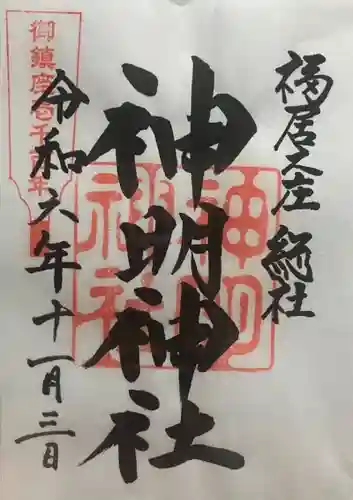 福居之庄 総社
神明神社
令和六年十一月三日
御鎮座壱千百年
神明
神社